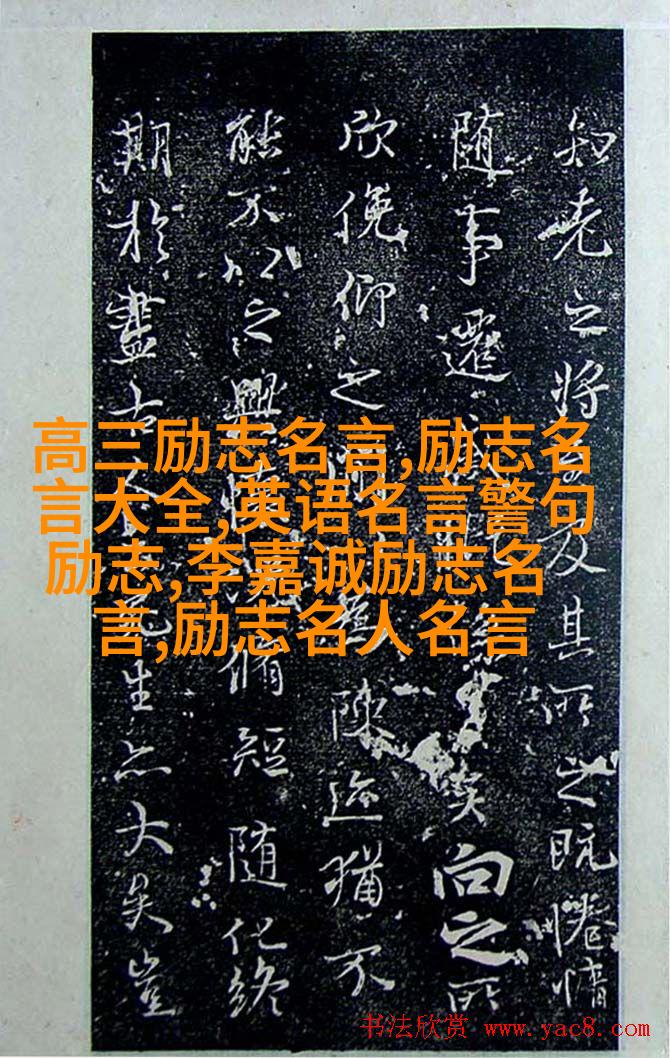 知老之將至及其所之既惓情
随事遷感慨係之矣向之所
欣俛仰之間以為陳迹猶不
能不以之興懷況脩短随化終
期於盡古人云死生亦大矣豈
高三励志名言,励志名
言大全,英语名言警句
励志,李嘉诚励志名
言,励志名人名言
书法欣赏 www.yac8.com